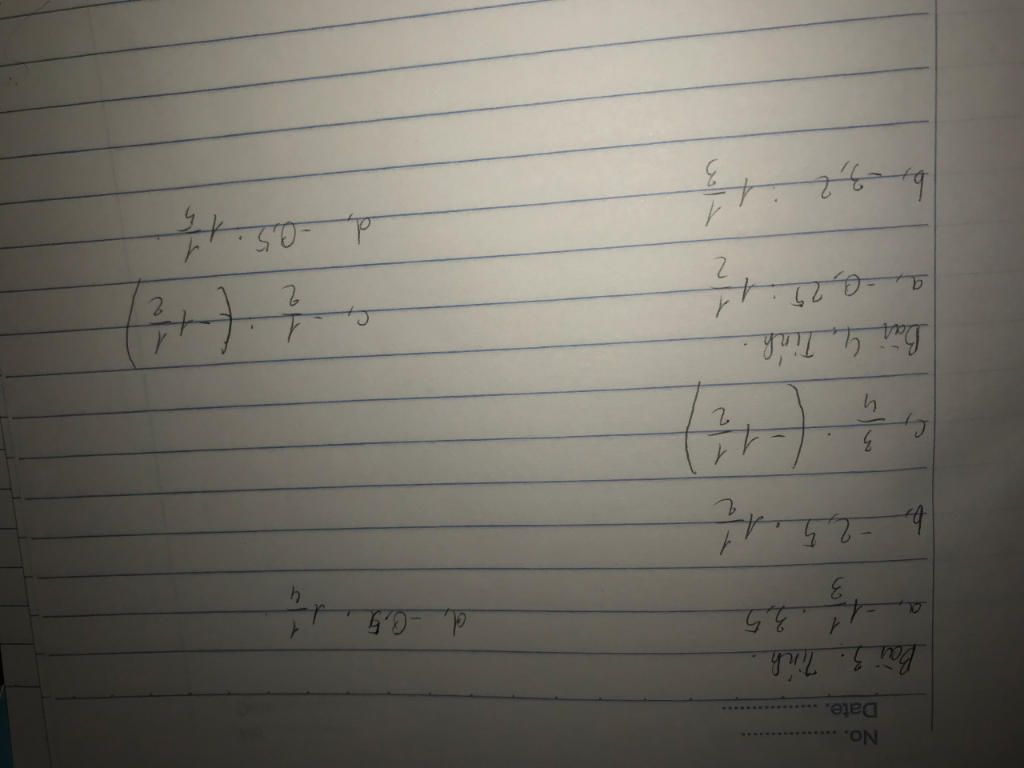 No. ................
Date. ................
Bài 3. Tính.
a, -1 1/3 . 3,5 d, -0,5 . 1 1/4
b, -2,5 . 1 1/2
c, 3/4 . (-1 1/2)
Bài 4, Tính.
a, -0,25 : 1 1/2 c, -1/2 : (-1 1/2)
b, -3,2 : 1 1/3 d, -0,5 : 1 1/5